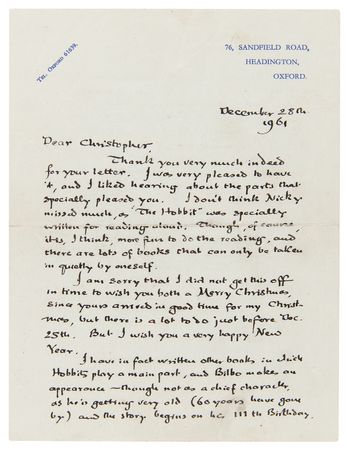 Tel. Oxford 61639.
76, SANDFIELD ROAD,
HEADINGTON,
OXFORD.
December 28th
1961
Dear Christopher,
Thank you very much indeed
for your letter. I was very pleased to have
it, and I liked hearing about the parts that
specially pleased you. I don't think Nicky
missed much, as "The Hobbit" was specially
written for reading aloud. Though, of course,
it is, I think, more fun to do the reading, and
there are lots of books that can only be taken
in quietly by oneself.
I am sorry that I did not get this off
in time to wish you both a Merry Christmas,
since yours arrived in good time for my Christ-
mas, but there is a lot to do just before Dec.
25th. But I wish you a very happy New
Year.
I have in fact written other books in which
Hobbits play a main part, and Bilbo makes an
appearance – though not as a chief character,
as he's getting very old (60 years have gone
by) and the story begins on his 111th Birthday.